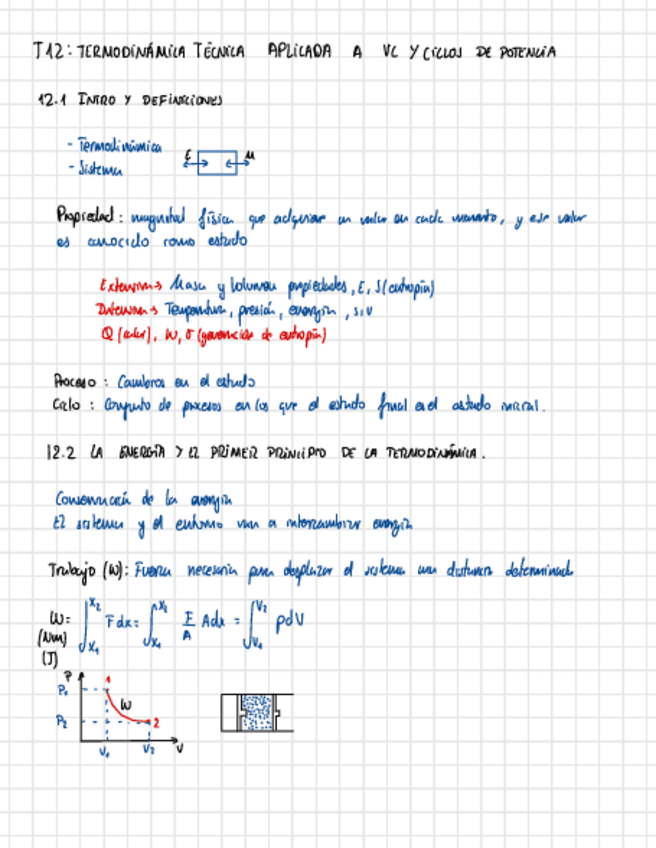 T12: TERMODINÁMICA TÉCNICA APLICADA A VC Y CICLOS DE POTENCIA
12.1 INTRO Y DEFINICIONES
- Termodinámica
- Sistema
E M
Propiedad: magnitud física que adquiere un valor en cada momento, y ese valor
es conocido como estado
Extensivas Masa y Volumen propiedades, E, S(entropía)
Intensivas Temperatura, presión, energía, s, v
Q (calor), W, σ (generación de entropía)
Proceso: Cambios en el estado
Ciclo: Conjunto de procesos en los que el estado final es el estado inicial.
12.2 LA ENERGÍA Y EL PRIMER PRINCIPIO DE LA TERMODINÁMICA.
Conservación de la energía
El sistema y el entorno van a intercambiar energía
Trabajo (W): Fuerza necesaria para desplazar el sistema una distancia determinada
W = ∫x₁x₂ F dx = ∫x₁x₂ F/A Adx = ∫V₁V₂ pdV
(Nm)
(J)
P 1
P₁ W
P₂ 2
V₁ V₂ V